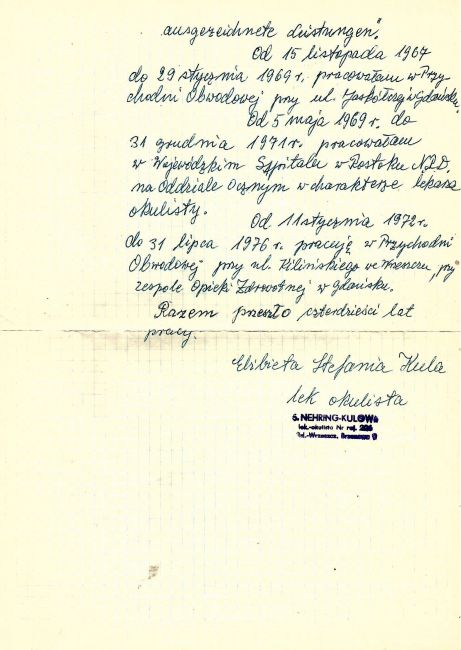 ausgezeichnete Leistungen".
Od 15 listopada 1967
do 29 stycznia 1969 r. pracowałam w Przy-
chodni Obwodowej przy ul. Jaskółczej w Gdańsku.
Od 5 maja 1969 r. do
31 grudnia 1971 r. pracowałam
w Wojewódzkim Szpitalu w Rostoku NRD.
na Oddziale Ocznym w charakterze lekarza
okulisty.
Od 11 stycznia 1972 r.
do 31 lipca 1976 r. pracuję w Przychodni
Obwodowej przy ul. Kilińskiego we Wrzeszczu, przy
zespole Opieki Zdrowotnej w Gdańsku.
Razem przeszło czterdzieści lat
pracy.
Elżbieta Stefania Kula
lek okulista
S. NEHRING-KULOWA
lek.-okulista Nr rej. 226
Gd.-Wrzeszcz, 9